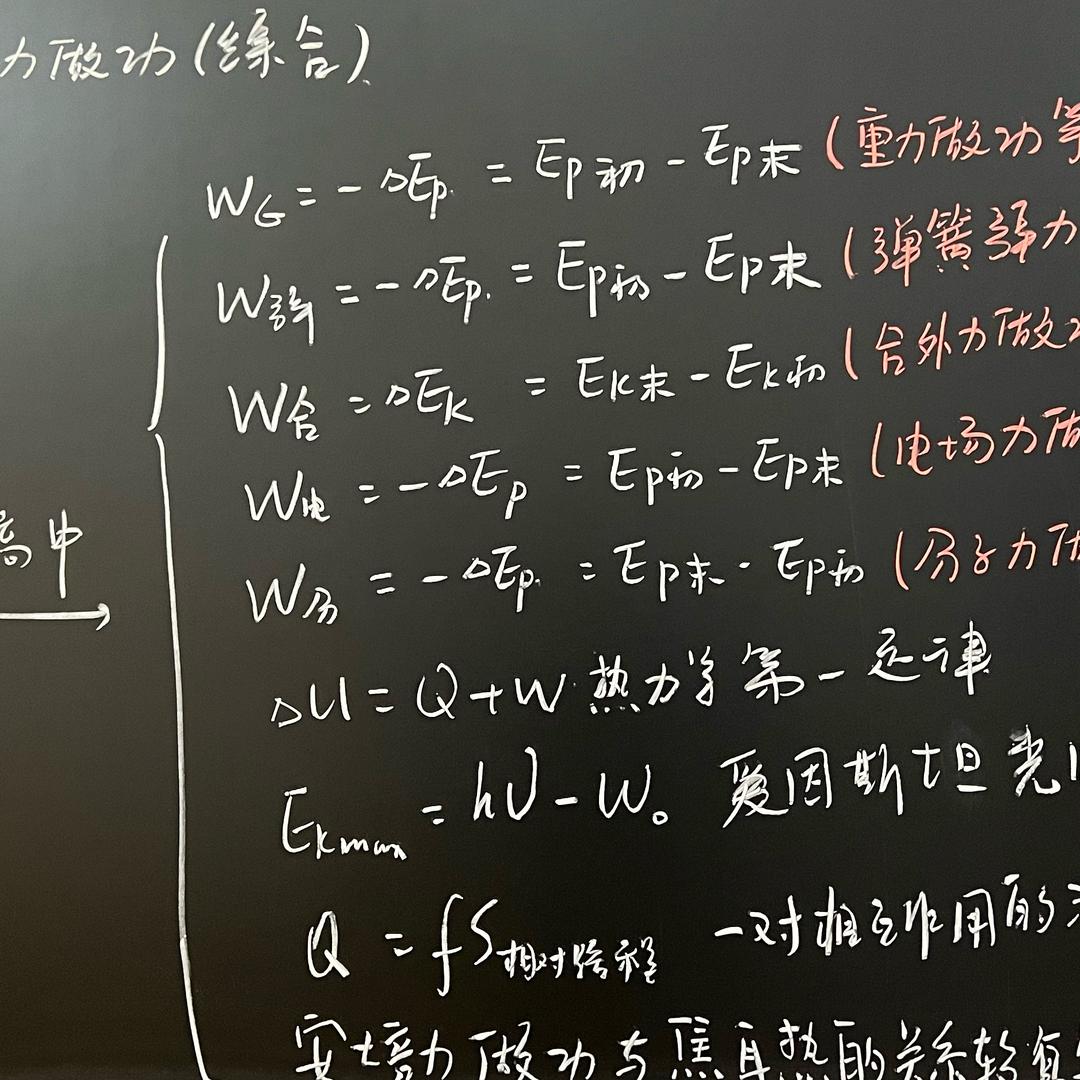 力做功(综合)
W_G = -ΔEp = Ep初 - Ep末 (重力做功等
W弹 = -ΔEp = Ep初 - Ep末 (弹簧弹力
W合 = ΔEk = Ek末 - Ek初 (合外力做功
W电 = -ΔEp = Ep初 - Ep末 (电场力做
高中
W分 = -ΔEp = Ep末 - Ep初 (分子力做
ΔU = Q+W 热力学第一定律
Ekmax = hν - W₀ 爱因斯坦光
Q = fS相对路程 一对相互作用的
安培力做功与焦耳热的关系较复